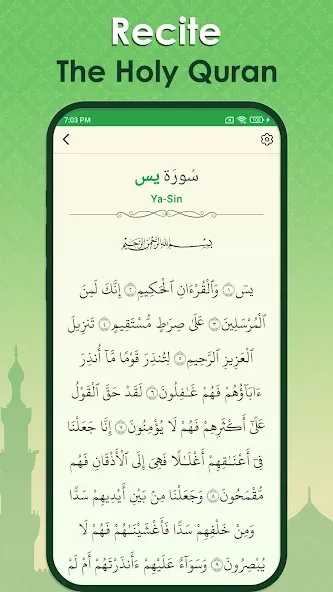 Recite
The Holy Quran
7:03 PM
100
سُورَة يس
Ya-Sin
بِسْمِ اللهِ الرَّحْمٰنِ الرَّحِيْمِ
يسٓ ۝١ وَالْقُرْءَانِ الْحَكِيمِ ۝٢ إِنَّكَ لَمِنَ
الْمُرْسَلِينَ ۝٣ عَلَىٰ صِرَٰطٍ مُّسْتَقِيمٍ ۝٤ تَنزِيلَ
الْعَزِيزِ الرَّحِيمِ ۝٥ لِتُنذِرَ قَوْمًا مَّا أُنذِرَ
ءَابَآؤُهُمْ فَهُمْ غَٰفِلُونَ ۝٦ لَقَدْ حَقَّ الْقَوْلُ
عَلَىٰٓ أَكْثَرِهِمْ فَهُمْ لَا يُؤْمِنُونَ ۝٧ إِنَّا جَعَلْنَا
فِىٓ أَعْنَٰقِهِمْ أَغْلَٰلًا فَهِىَ إِلَى الْأَذْقَانِ فَهُم
مُّقْمَحُونَ ۝٨ وَجَعَلْنَا مِنۢ بَيْنِ أَيْدِيهِمْ سَدًّا
وَمِنْ خَلْفِهِمْ سَدًّا فَأَغْشَيْنَٰهُمْ فَهُمْ لَا
يُبْصِرُونَ ۝٩ وَسَوَآءٌ عَلَيْهِمْ ءَأَنذَرْتَهُمْ أَمْ لَمْ